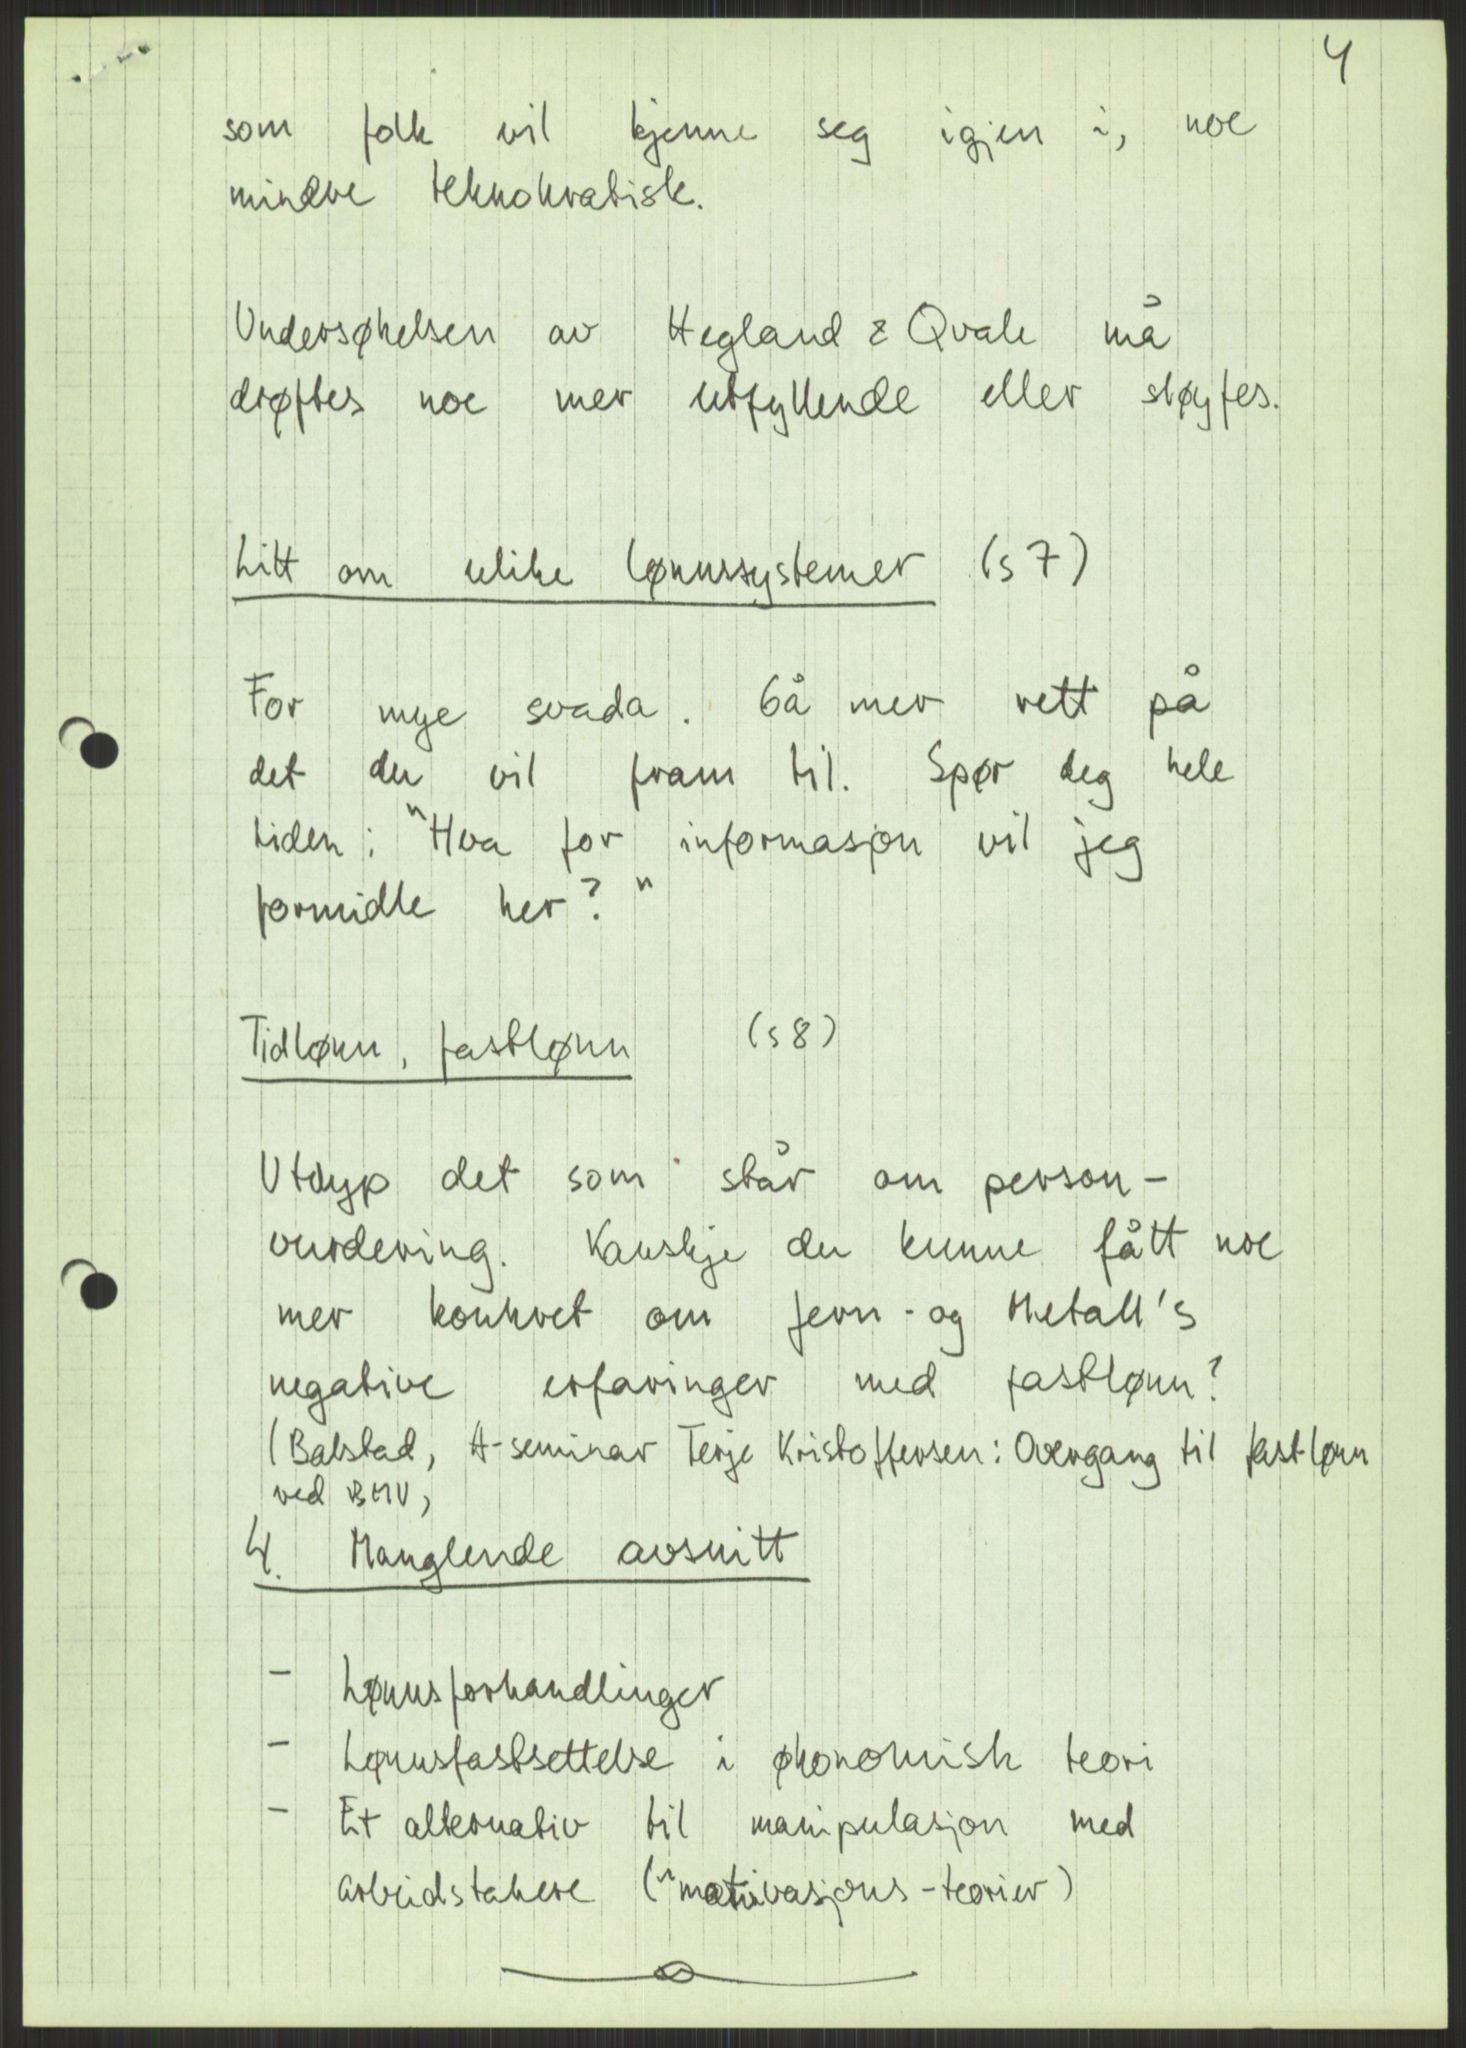 4
som folk vil kjenne seg igjen i, noe
mindre teknokratisk.
Undersøkelsen av Hegland & Qvale må
drøftes noe mer utfyllende eller sløyfes.
Litt om ulike lønnssystemer (s 7)
For mye svada. Gå mer rett på
det du vil fram til. Spør deg hele
tiden: "Hva for informasjon vil jeg
formidle her?"
Tidlønn, fastlønn (s 8)
Utdyp det som står om person-
vurdering. Kanskje du kunne fått noe
mer konkret om Jern- og Metall's
negative erfaringer med fastlønn?
(Balstad, A-seminar Terje Kristoffersen: Overgang til fastlønn
ved BMV,
4. Manglende avsnitt
- Lønnsforhandlinger
- Lønnsfastsettelse i økonomisk teori
- Et alternativ til manipulasjon med
arbeidstakere ("motivasjons-teorier)